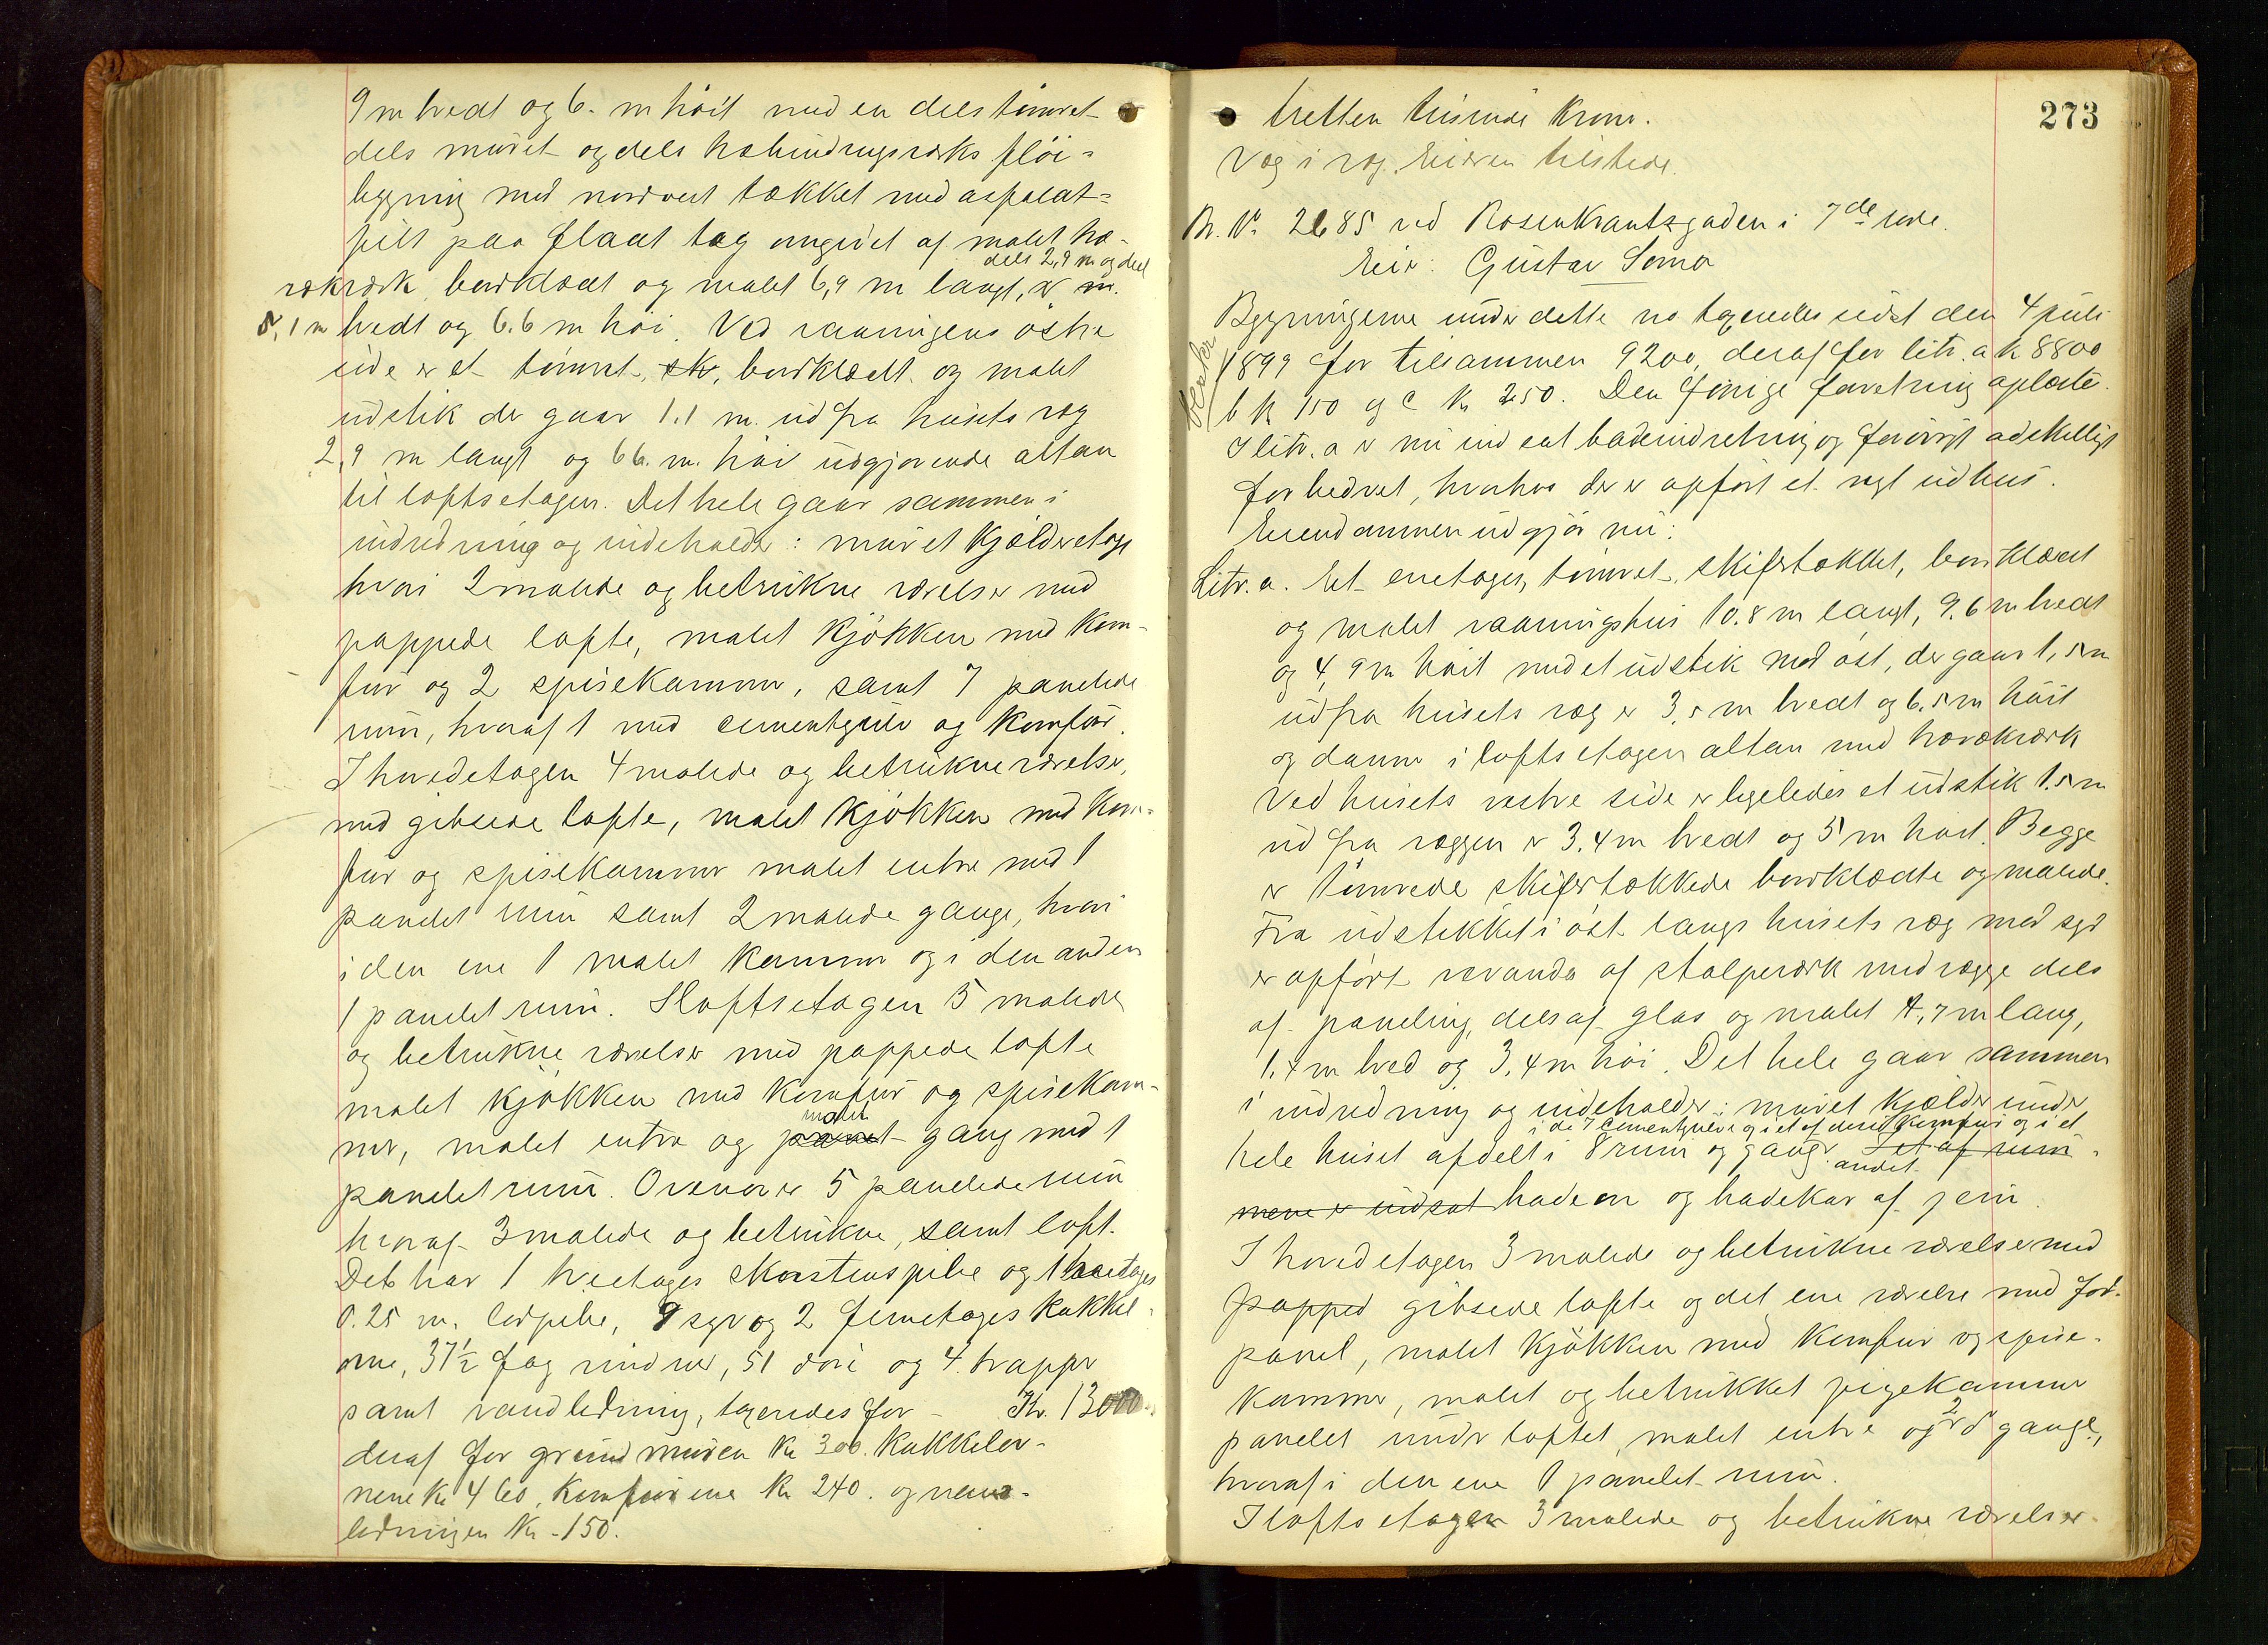 9 m bredt og 6. m höit med en dels tömret
dels muret og dels træbindingsverks flöi=
bygning mod nordvest tækket med asfalat=
filt paa fladt tag omgivet af malet træ-
dels 2,9 m og dels
rækværk, bordklædt og malet 6,9 m langt, m.
5,1 m bredt og 6.6 m höi. Ved vaaningens östre
side er et tömret, sk, bordklædt og malet
udstik der gaar 1.1 m. ud fra husets væg
2,9 m langt og 6 6. m. höi udgjörende altan
til loftsetagen. Det hele gaar sammen i
indredning og indeholder: muret kjælderetage
hvori 2 malede og betrukne værelser med
pappede lofte, malet kjökken med kom-
fur og 2 spisekammer, samt 7 panelede
rum, hvoraf 1 med cementgulv og komfur.
I hovedetagen 4 malede og betrukne værelser,
med gibsede lofte, malet kjökken med kom-
fur og spisekammer malet entre med 1
panelet rum samt 2 malede gange, hvori
i den ene 1 malet kammer og i den anden
1 panelet rum. I loftsetagen 5 malede
og betrukne værelser med pappede lofte
malet kjökken med komfur og spisekam-
malet
mer, malet entre og panelet gang med 1
panelet rum. Ovenover 5 panelede rum
hvoraf 3 malede og betrukne, samt loft.
Det har 1 treetages skorstenspibe og 1 toetages
0.25 m. lodpibe, 9 syv og 2 femetages kakkel-
ovne, 37½ fag vinduer, 51 döre og 4 trapper
samt vandledning, taxeredes for – Kr. 13000.
deraf for grundmuren Kr 300. Kakkelov-
nene Kr 460, komfurene Kr 240. og vand-
ledningen Kr. 150.
273
tretten tusinde kroner.
Væg i væg. Eieren tilstede.
Br. No. 2685 ved Rosenkrantzgaden i 7de rode.
Eier: Gustav Somo
Bygningerne under dette no taxeredes sidst den 4 juli
1899 for tilsammen 9200, deraf for litr. a k 8800
b k 150 og c k 250. Den forrige forretning oplæstes.
I litr. a er nu indsat badeindretning og forövrigt adskilligt
forbedret, hvorhos der er opfört et nyt udhus.
Eiendommen udgjör nu:
Litr. a. Et enetages, tömret, skifertækket, bordklædt
og malet vaaningshus 10.8 m langt, 9.6 m bredt
og 4,9 m höit med et udstik mod öst, der gaar 1,5 m
ud fra husets væg er 3,5 m bredt og 6.5 m höit
og danner i loftsetagen altan med trærækværk
Ved husets vestre side er ligeledes et udstik 1.5 m
ud fra væggen er 3.4 m bredt og 5 m höit. Begge
er tömrede skifertækkede bordklædte og malede.
Fra udstikket i öst langs husets væg mod syd
er opfört veranda af stolpeværk med vægge dels
af paneling, dels af glas og malet 4,7 m lang,
1,4 m bred og 3,4 m höi. Det hele gaar sammen
i indredning og indeholder: muret kjælder under
i de 7 cementgulv og i et af disse komfur og i et
hele huset afdelt i 8 rum og gang. I et af rum-
andet
mene er indsat badeovn og badekar af jern.
I hovedetagen 3 malede og betrukne værelser med
papped gibsede lofte og det ene værelse med fod-
panel, malet kjökken med komfur og spise-
kammer, malet og betrukket pigekammer
2
panelet under loftet, malet entre og gange,
hvoraf i den ene 1 panelet rum.
I loftsetagen 3 malede og betrukne værelser